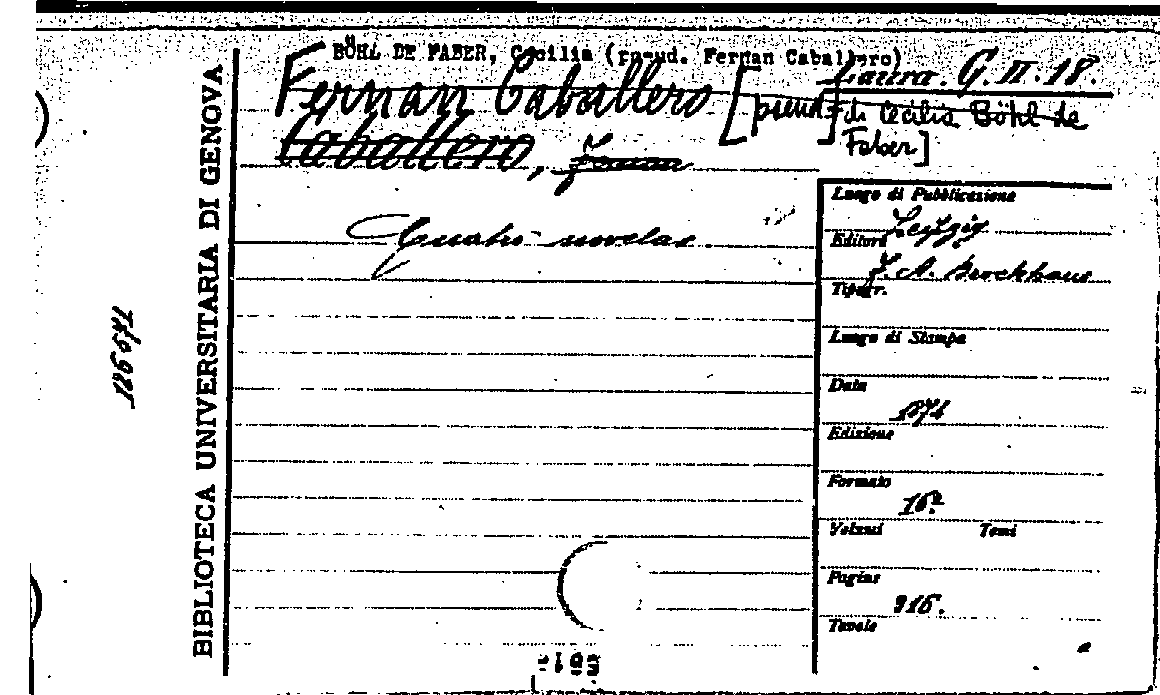 BÖHL DE FABER, Cecilia (pseud. Fernan Caballero)
Laura. G. II. 18.
Fernan Caballero [pseud. di Cecilia Böhl de
Faber]
Caballero, Fernan
Quatro novelas.
BIBLIOTECA UNIVERSITARIA DI GENOVA
Luogo di Pubblicazione
Leipzig
Editore
F. A. Brockhaus
Tipogr.
Luogo di Stampa
Data
Edizione
Formato
16º
Volumi Tomi
Pagine
316.
Tavole